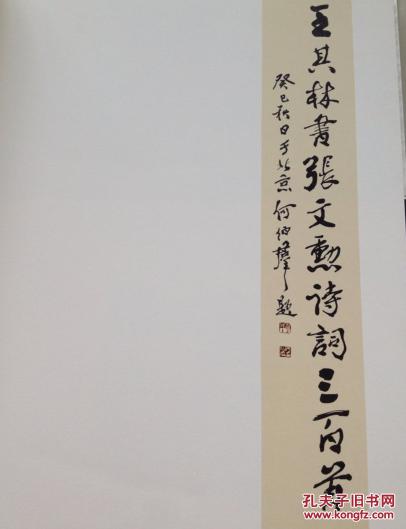 王其林書張文勳诗詞三百首
癸巳秋日于北京何伯群题
孔夫子旧书网
www.kongfz.com